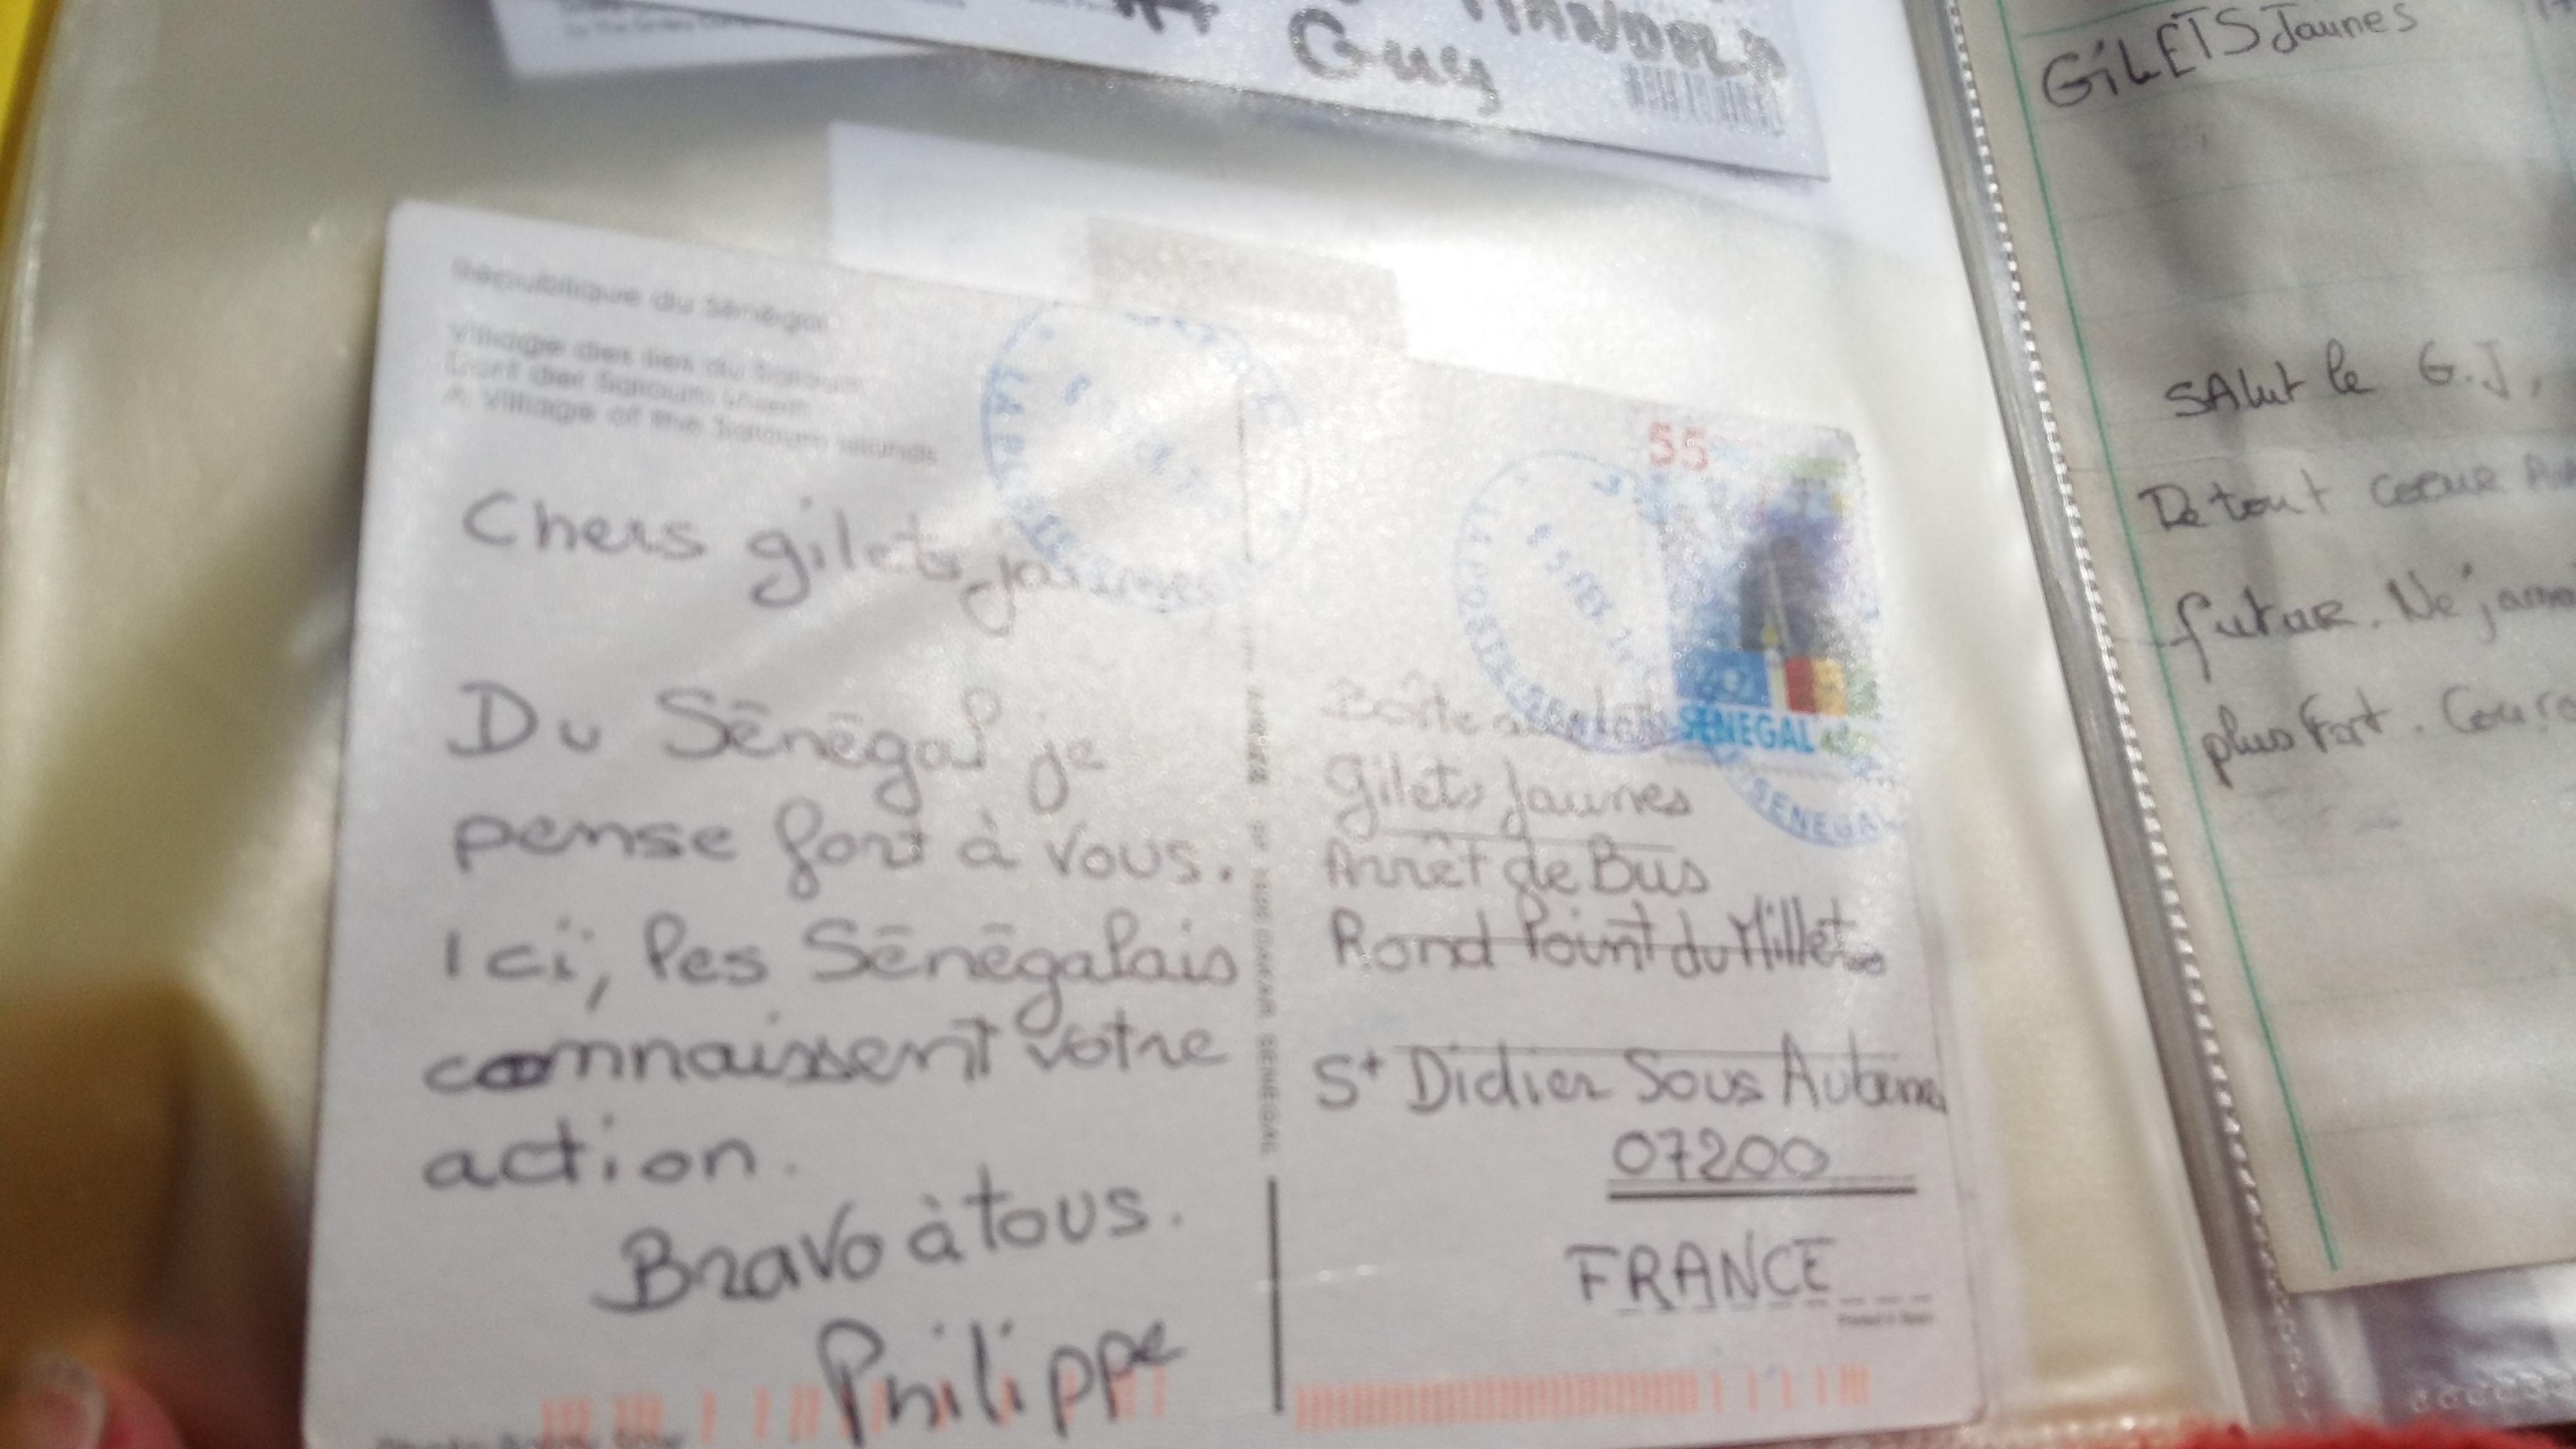 Guy
République du Sénégal
Village des îles du Saloum
A Village of the Saloum Islands
Chers gilets jaunes
Du Sénégal je
pense fort à vous.
Ici, les Sénégalais
connaissent votre
action.
Bravo à tous.
Philippe
55
SENEGAL
SENEGAL
Boîte a
Gilets Jaunes
Arrêt de Bus
Rond Point du Millet
St Didier Sous Aubenas
07200
FRANCE
DAKAR SENEGAL
GILETS Jaunes
SAlut le G.J,
De tout coeur
futur. Ne
plus fort.